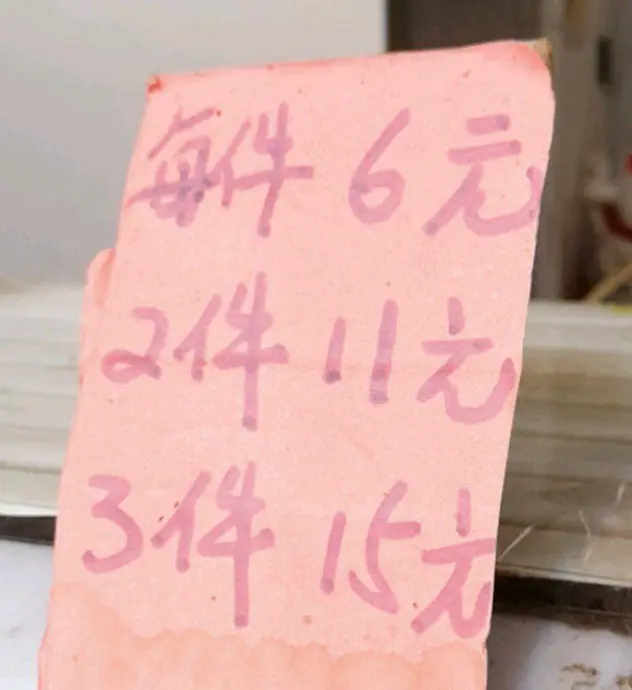 每件 6元
2件 11元
3件 15元